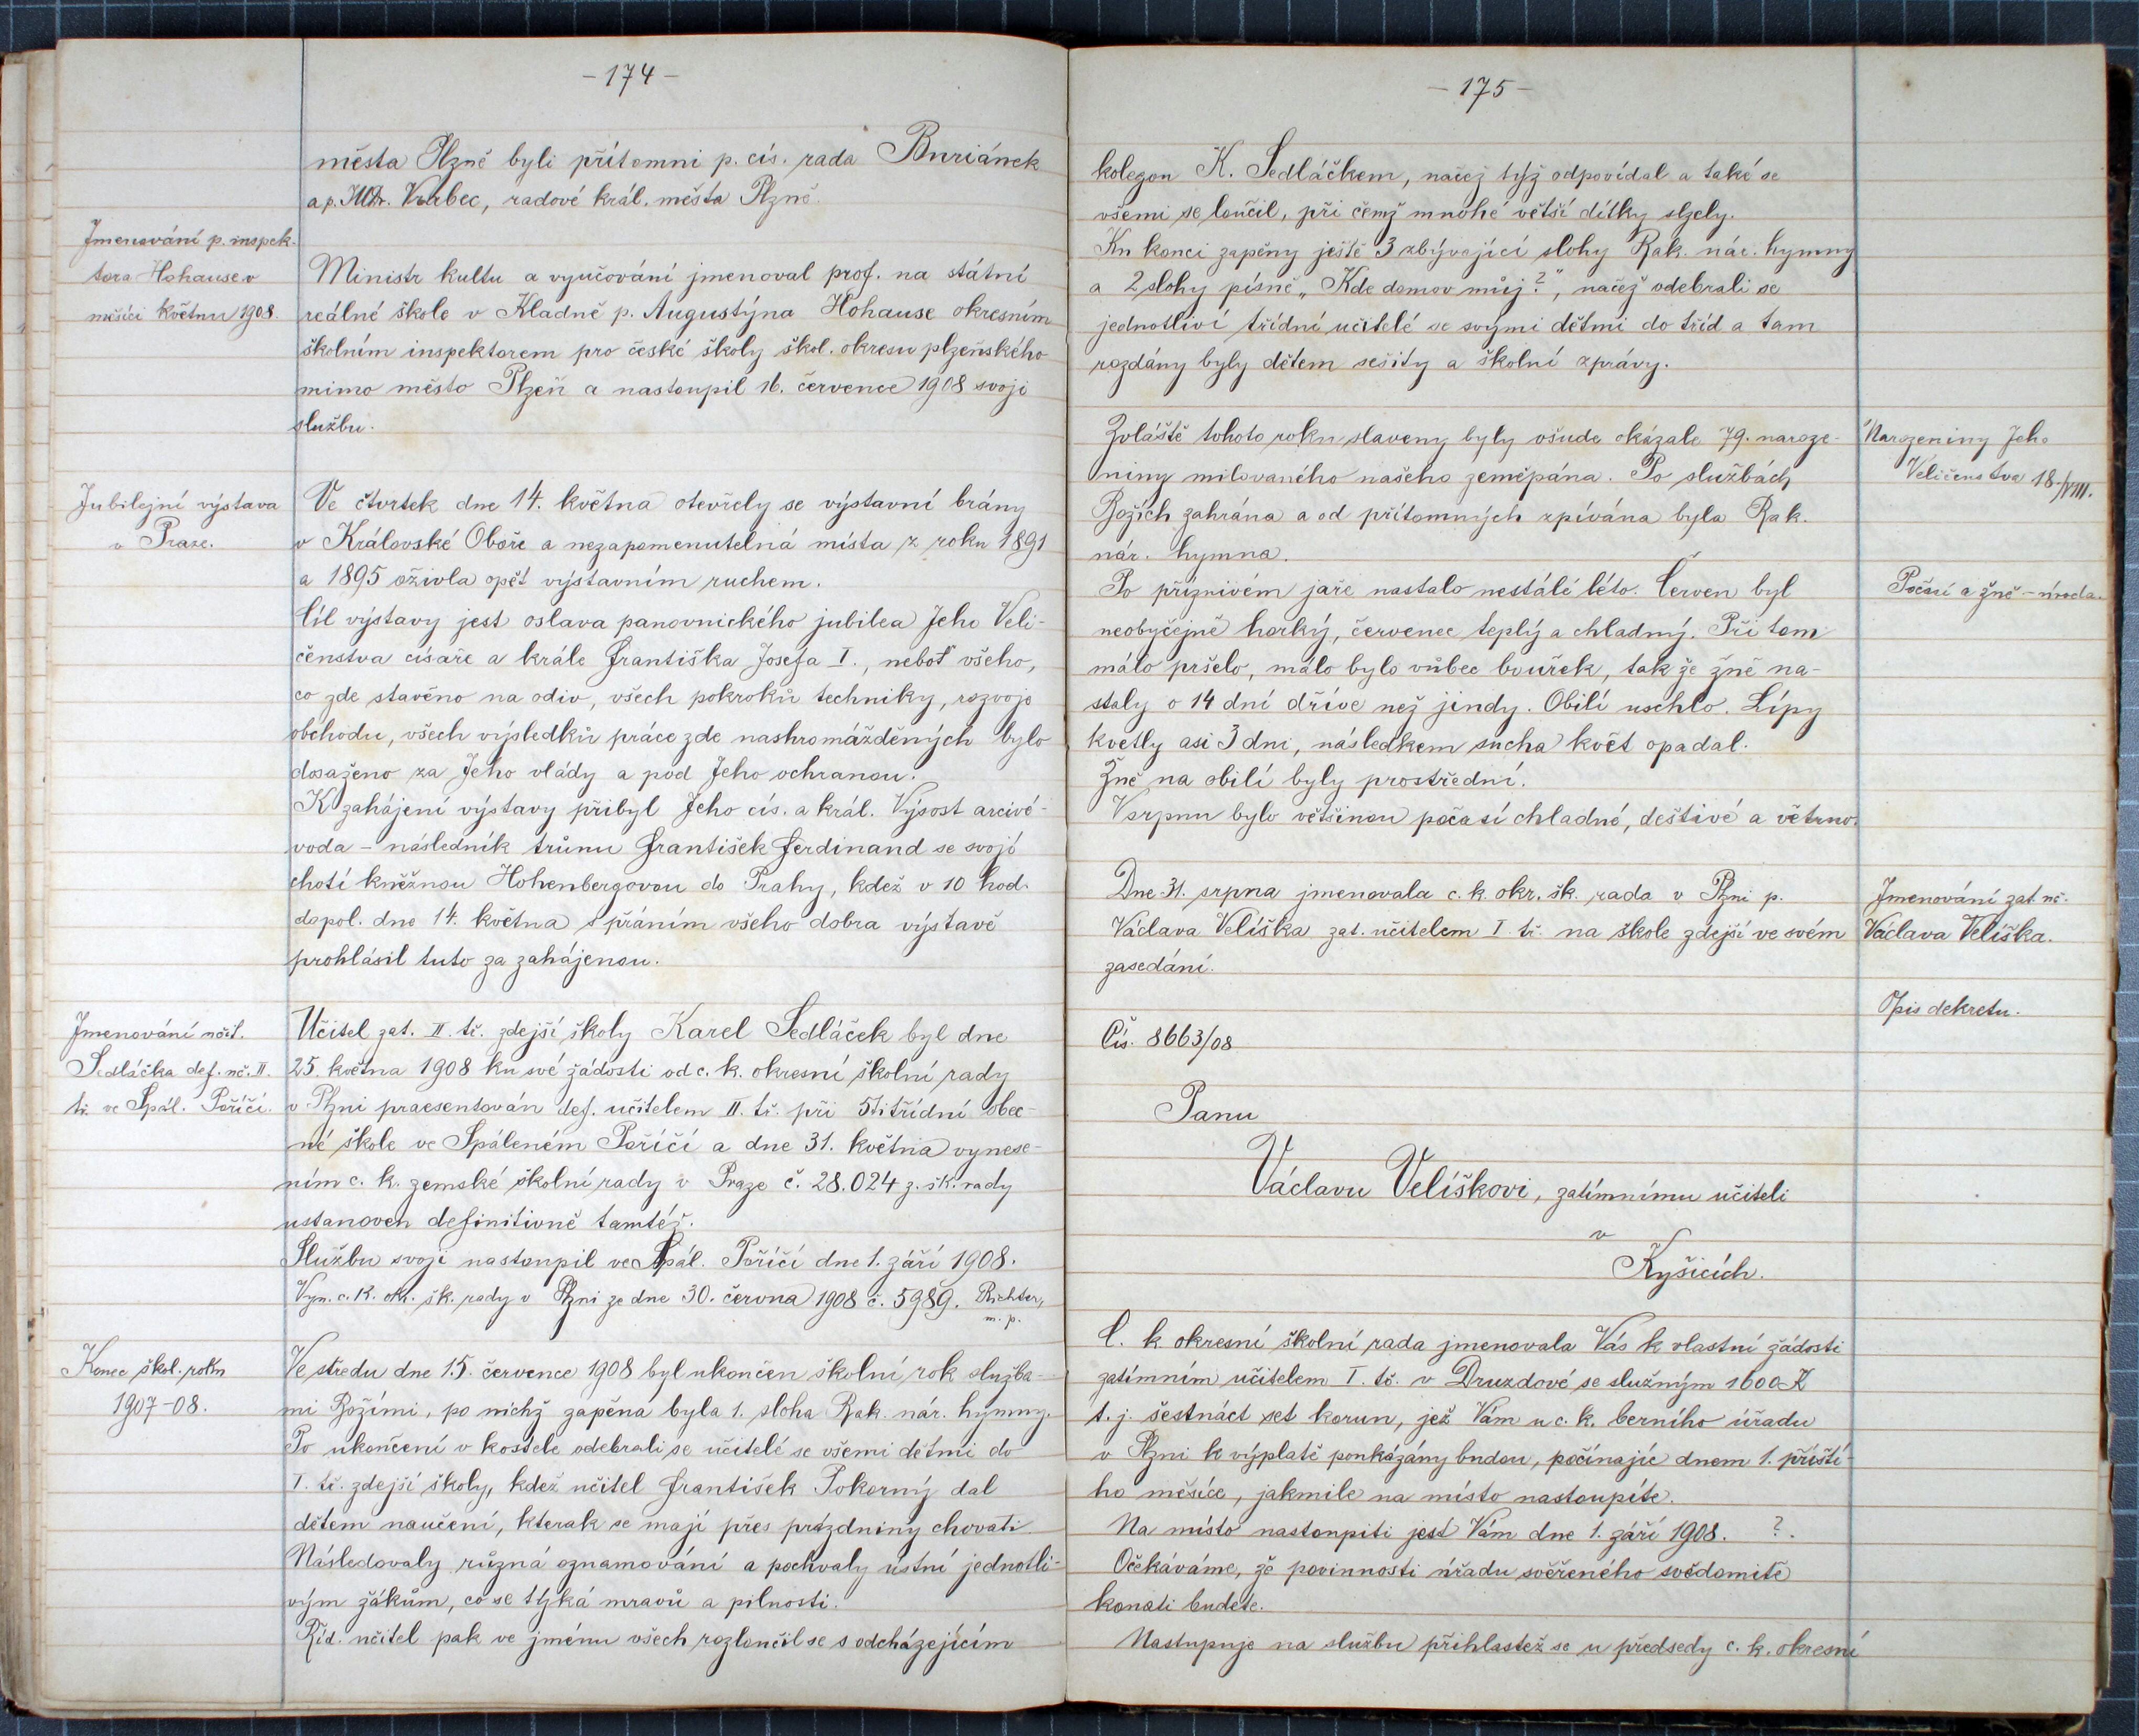 - 174 -
města Plzně byli přítomni p. cís. rada Buriánek
a p. JUDr. Vrabec, radové král. města Plzně.
Jmenování p. inspek-
tora Hohause v
měsíci květnu 1908.
Ministr kultu a vyučování jmenoval prof. na státní
reálné škole v Kladně p. Augustýna Hohause okresním
školním inspektorem pro české školy škol. okresu plzeňského
mimo město Plzeň a nastoupil 16. července 1908 svoji
službu.
Jubilejní výstava
v Praze.
Ve čtvrtek dne 14. května otevřely se výstavní brány
v Královské Oboře a nezapomenutelná místa z roku 1891
a 1895 oživla opět výstavním ruchem.
Cíl výstavy jest oslava panovnického jubilea Jeho Veli-
čenstva císaře a krále Františka Josefa I., neboť všeho,
co zde stavěno na odiv, všech pokroků techniky, rozvoje
obchodu, všech výsledků práce zde nashromážděných bylo
dosaženo za Jeho vlády a pod Jeho ochranou.
K zahájení výstavy přibyl Jeho cís. a král. Výsost arcivé-
voda - následník trůnu František Ferdinand se svojí
chotí kněžnou Hohenbergovou do Prahy, kdež v 10 hod.
dopol. dne 14. května s přáním všeho dobra výstavě
prohlásil tuto za zahájenou.
Jmenování učit.
Sedláčka def. uč. II.
tř. ve Spál. Poříčí.
Učitel zat. II. tř. zdejší školy Karel Sedláček byl dne
25. května 1908 ku své žádosti od c. k. okresní školní rady
v Plzni praesentován def. učitelem II. tř. při 5titřídní obec-
né škole ve Spáleném Poříčí a dne 31. května vynese-
ním c. k. zemské školní rady v Praze č. 28.024 z. šk. rady
ustanoven definitivně tamtéž.
Službu svoji nastoupil ve Spál. Poříčí dne 1. září 1908.
Vyn. c. k. okr. šk. rady v Plzni ze dne 30. června 1908 č. 5989. Richter,
m. p.
Konec škol. roku
1907-08.
Ve středu dne 15. července 1908 byl ukončen školní rok služba-
mi Božími, po nichž zapěna byla 1. sloha Rak. nár. hymny.
Po ukončení v kostele odebrali se učitelé se všemi dětmi do
I. tř. zdejší školy, kdež učitel František Pokorný dal
dětem naučení, kterak se mají přes prázdniny chovati.
Následovaly různá oznamování a pochvaly ústní jednotli-
vým žákům, co se týká mravů a pilnosti.
Říd. učitel pak ve jménu všech rozloučil se s odcházejícím
- 175 -
kolegou K. Sedláčkem, načež týž odpovídal a také se
všemi se loučil, při čemž mnohé větší dítky slzely.
Ku konci zapěny ještě 3 zbývající slohy Rak. nár. hymny
a 2 slohy písně „Kde domov můj?", načež odebrali se
jednotliví třídní učitelé se svými dětmi do tříd a tam
rozdány byly dětem sešity a školní zprávy.
Zvláště tohoto roku slaveny byly všude okázale 79. naroze-
niny milovaného našeho zeměpána. Po službách
Božích zahrána a od přítomných zpívána byla Rak.
nár. hymna.
Narozeniny Jeho
Veličenstva 18./VIII.
Po příznivém jaře nastalo nestálé léto. Červen byl
neobyčejně horký, červenec teplý a chladný. Při tom
málo pršelo, málo bylo vůbec bouřek, tak že žně na-
staly o 14 dní dříve než jindy. Obilí uschlo. Lípy
kvetly asi 3 dni, následkem sucha květ opadal.
Žně na obilí byly prostřední.
V srpnu bylo většinou počasí chladné, deštivé a větrno.
Počasí a žně - úroda.
Dne 31. srpna jmenovala c. k. okr. šk. rada v Plzni p.
Václava Velíška zat. učitelem I. tř. na škole zdejší ve svém
zasedání.
Jmenování zat. uč.
Václava Velíška.
Opis dekretu.
Čís. 8663/08
Panu
Václavu Velíškovi, zatímnímu učiteli
v
Kyšicích.
C. k. okresní školní rada jmenovala Vás k vlastní žádosti
zatímním učitelem I. tř. v Druzdové se služným 1600 K
t. j. šestnáct set korun, jež Vám u c. k. berního úřadu
v Plzni k výplatě poukázány budou, počínajíc dnem 1. příští-
ho měsíce, jakmile na místo nastoupíte.
Na místo nastoupiti jest Vám dne 1. září 1908. ?.
Očekáváme, že povinnosti úřadu svěřeného svědomitě
konati budete.
Nastupuje na službu přihlastež se u předsedy c. k. okresní